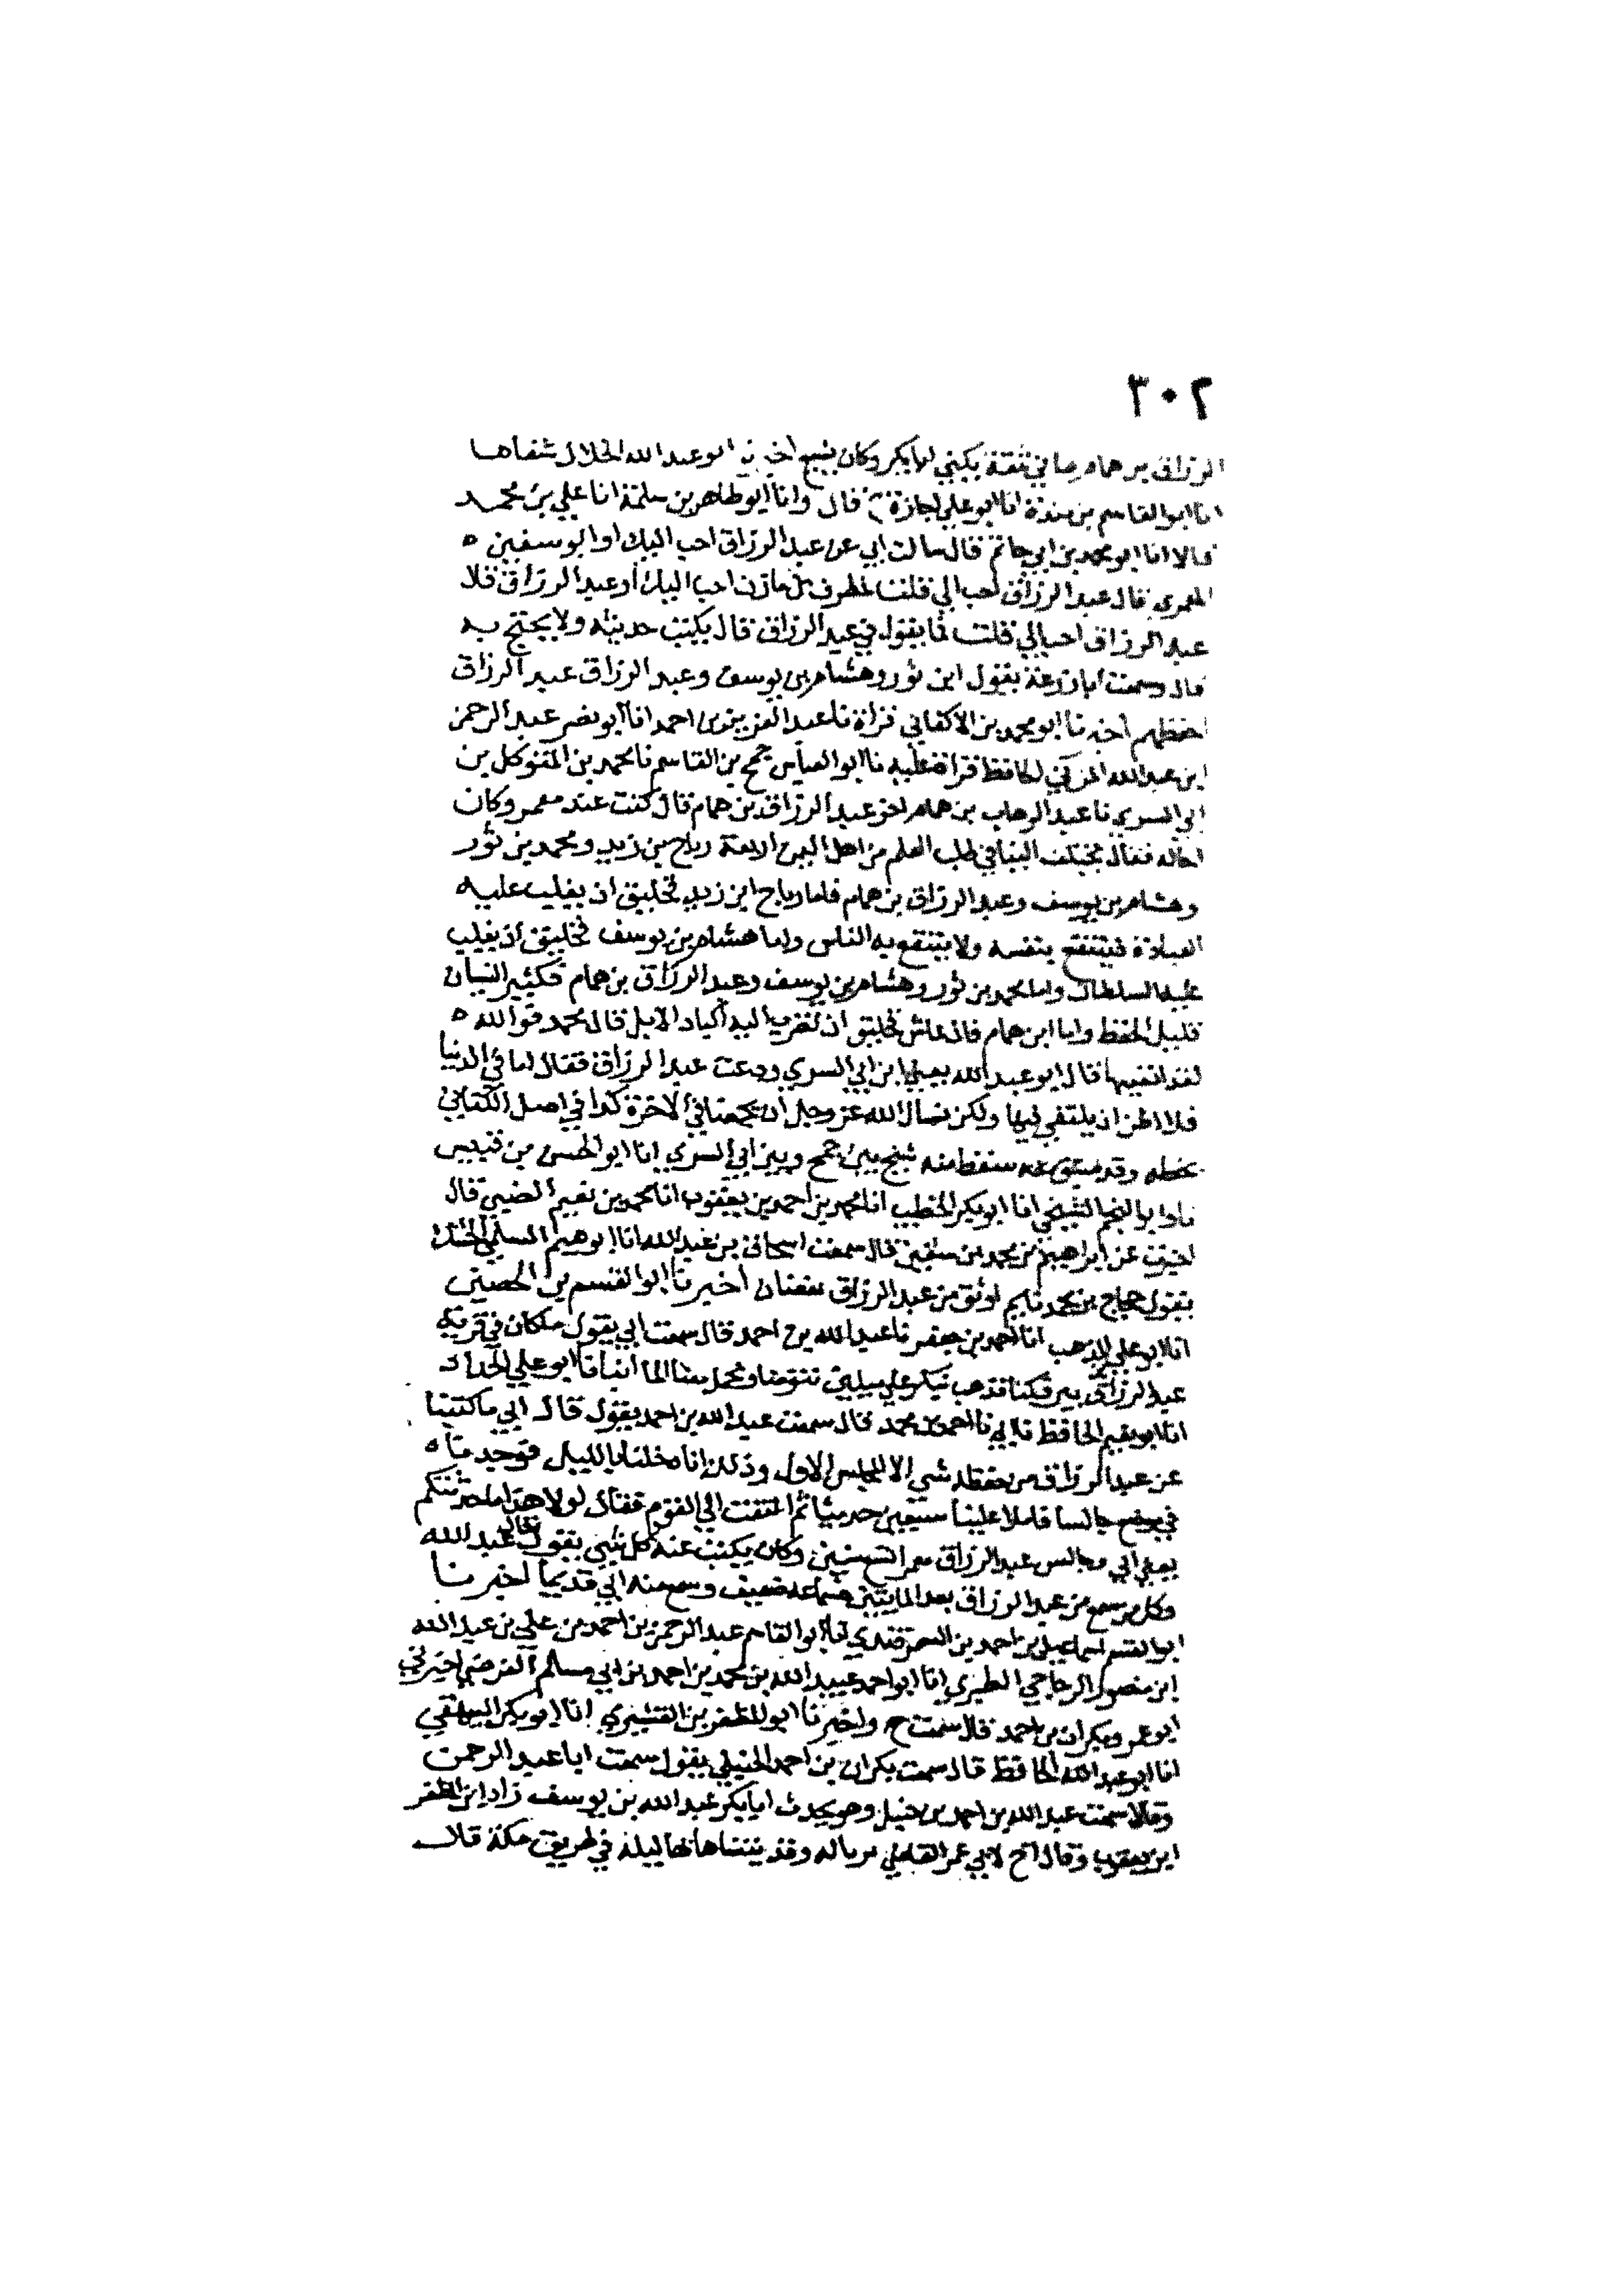 ٣٠٢
الرزاق بن همام صنعاني ثقة يكنى ابا بكر وكان يتشيع اخبرنا ابو عبد الله الخلال شفاها
انا ابو القاسم بن مندة انا ابو علي اجازة ح قال وانا ابو طاهر بن سلمة انا علي بن محمد
قالا انا ابو محمد بن ابي حاتم قال سالت ابي عن عبد الرزاق احب اليك او ابو سفين ه
المعمري قال عبد الرزاق احب الي قلت مطرف بن مازن احب اليك او عبد الرزاق قال
عبد الرزاق احب الي قلت فما يقول في عبد الرزاق قال يكتب حديثه ولا يحتج به
قال وسمعت ابا زرعة يقول ابن ثور وهشام بن يوسف وعبد الرزاق عبد الرزاق
احفظهم اخبرنا ابو محمد بن الاكفاني قراة نا عبد العزيز بن احمد انا ابو نصر عبد الرحمن
ابن عبد الله المري الحافظ قراة عليه نا ابو العباس جمح بن القاسم نا محمد بن المتوكل بن
ابي السري نا عبد الوهاب بن همام اخو عبد الرزاق بن همام قال كنت عند معمر وكان
فقال يختلف الينا في طلب العلم من اهل اليمن اربعة رباح بن زيد ومحمد بن ثور
وهشام بن يوسف وعبد الرزاق بن همام فاما رباح ابن زيد فخليق ان يغلب عليه
العبادة فينتفع بنفسه ولا ينتفع به الناس واما هشام بن يوسف فخليق ان يغلب
عليه السلطان واما محمد بن ثور وهشام بن يوسف وعبد الرزاق بن همام فكثير النسيان
قليل الحفظ واما ابن همام فان عاش فخليق ان تضرب اليه اكباد الابل قال محمد فوالله ه
لقد اتعبها قال ابو عبد الله يعني ابن ابي السري ودعت عبد الرزاق فقال اما في الدنيا
فلا اظن ان يلتقي فيها ولكن نسال الله عز وجل ان يجمعنا في الاخرة كذا في اصل الكتاني
بخطه وقد سقط منه شيخ بين جمح وبين ابي السري انا ابو الحسن بن قبيس
نا وابو النجم الشيحي انا ابو بكر الخطيب انا محمد بن احمد بن يعقوب انا محمد بن نعيم الضبي قال
اخبرت عن ابراهيم بن محمد بن سفين قال سمعت اسحاق بن عبد الله انا ابوهيم السلمي الخشك
يقول حجاج بن محمد نايم اوثق من عبد الرزاق يقظان اخبرنا ابو القسم بن الحصين
انا ابو علي المذهب انا احمد بن جعفر نا عبد الله بن احمد قال سمعت ابي يقول ما كان في قرية
عبد الرزاق بير فكنا نذهب نبكر على ميلين نتوضا ونحمل معنا الما انبانا ابو علي الحداد
انا ابو نعيم الحافظ نا ابي نا احمد بن محمد قال سمعت عبد الله بن احمد يقول قال ابي ما كتبنا
عن عبد الرزاق من حفظه شي الا المجلس الاول وذلك انا دخلنا بالليل فوجدناه
في موضع جالسا فاملا علينا سبعين حديثا ثم التفت الى القوم فقال لولا هذا ما حدثتكم
يعني ابي وجالس عبد الرزاق معمر تسع سنين وكان يكتب عنه كل شي يقول قال عبد الله
وكل من سمع من عبد الرزاق بعد المايتين فسماعه ضعيف وسمع منه ابي قديما اخبرنا
ابو القسم اسماعيل بن احمد بن السمرقندي انا ابو القاسم عبد الرحمن بن احمد بن علي بن عبد الله
ابن منصور الزجاجي الطبري انا ابو احمد عبيد الله بن محمد بن احمد بن ابي مسلم الفرضي اخبرني
ابو عمرو بكران بن احمد قال سمعت ح واخبرنا ابو المظفر بن القشيري انا ابو بكر البيهقي
انا ابو عبد الله الحافظ قال سمعت بكران بن احمد الحنبلي يقول سمعت ابا عبد الرحمن
وقالا سمعت عبد الله بن احمد بن حنبل وهو يحدث ابا بكر عبد الله بن يوسف زاد ابن المظفر
ابن يعقوب وقال اخ لابي عمر القاضي وقد تنشاها ليلة في طريق مكة قال